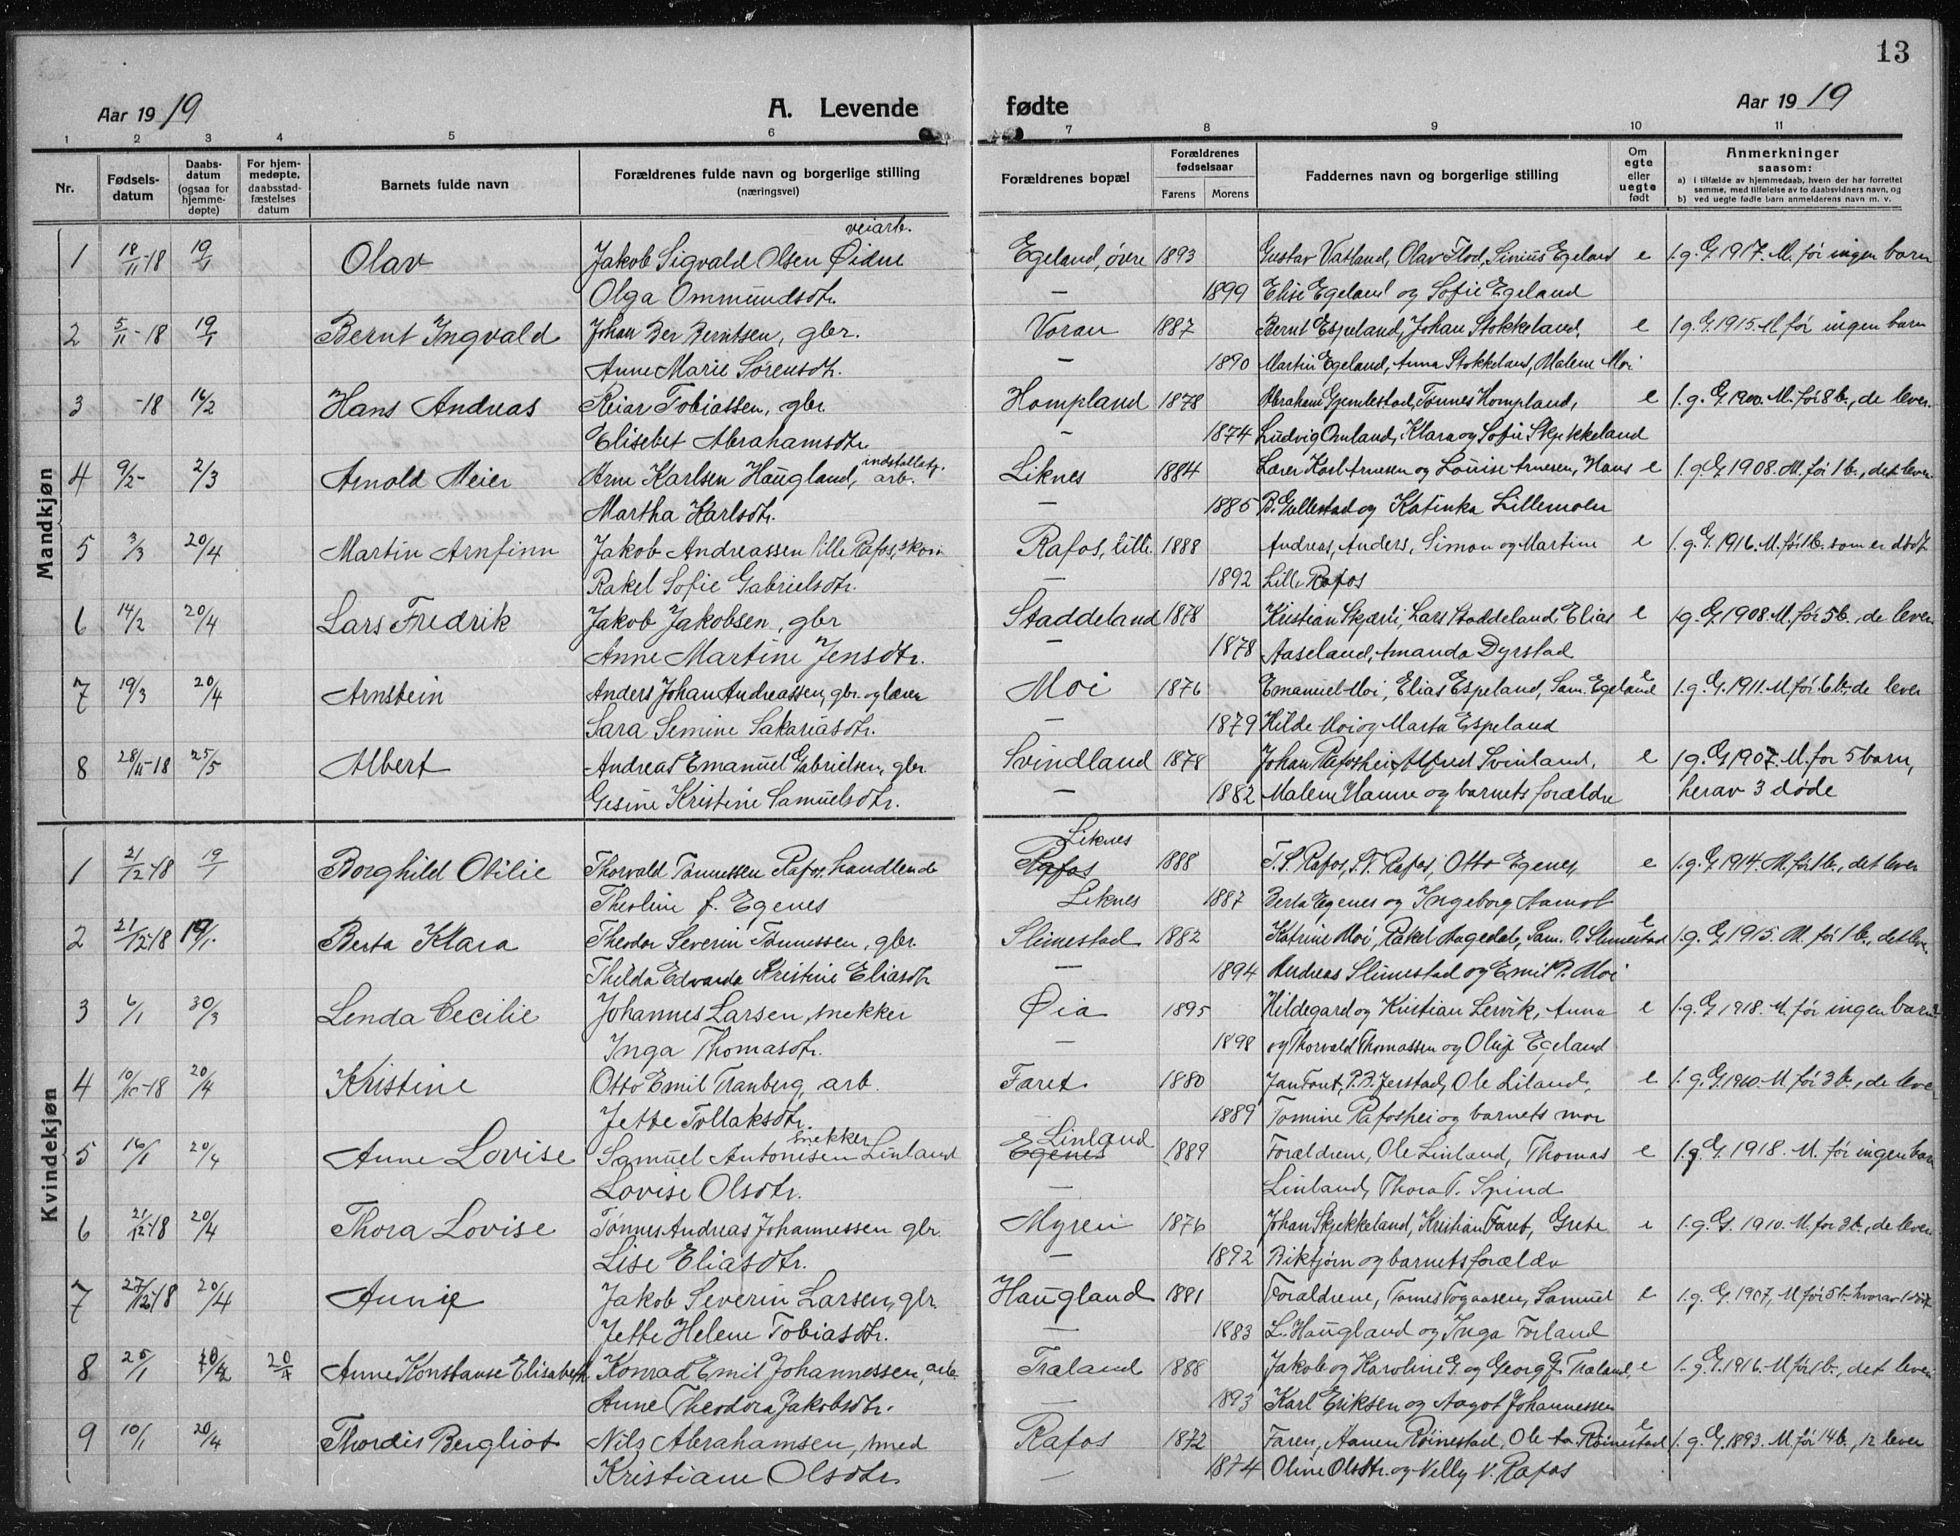 13
Aar 1919 A. Levende fødte Aar 1919
1 2 3 4 5 6 7 8 9 10 11
Nr. Fødsels-datum Daabs-datum (ogsaa for hjemme-døpte) For hjem-medøpte, daabsstad-fæstelses datum Barnets fulde navn Forældrenes fulde navn og borgerlige stilling (næringsvei) Forældrenes bopæl Forældrenes fødselsaar Farens Morens Faddernes navn og borgerlige stilling Om egte eller uegte født Anmerkninger saasom:
a) i tilfælde av hjemmedaab, hvem der har forrettet samme, med tilføielse av to daabsvidners navn, og
b) ved uegte fødte barn anmelderens navn m. v.
Mandkjøn
veiarb.
1 18/11-18 19/1 Olav Jakob Sigvald Olsen Øidne Egeland, øvre 1893 Gustav Vatland, Olav Flod, Sinius Egeland e 1.g.G. 1917. M. før ingen barn
Olga Ommundsdtr. — 1899 Elise Egeland og Sofie Egeland
2 5/11-18 19/1 Bernt Ingvald Johan Ber Berntsen, gbr. Voran 1887 Bernt Espeland, Johan Stokkeland, e 1 g.G. 1915. M. før ingen barn
Anne Marie Sørensdtr. — 1890 Martin Egeland, Anna Stokkeland, Malene Moi
3 -18 16/2 Hans Andreas Reiar Tobiassen, gbr. Hompland 1878 Abraham Gjemlestad, Tønnes Hompland, e 1.g.G. 1900. M. før 8 b., de lever.
Elisebet Abrahamsdtr. — 1874 Ludvig Omland, Klara og Sofie Skjekkeland
4 9/2- 2/3 Arnold Meier Arne Karlsen Haugland, installatr. arb. Liknes 1884 Lærer Karl Arnesen og Louise Arnesen, Hans e 1.g.G. 1908. M. før 1 b., det lever.
Martha Karlsdtr. — 1885 B. Gullestad og Katinka Lillemoler
5 3/3 20/4 Martin Arnfinn Jakob Andreassen lille Rafos, skom Rafos, lille 1888 Andreas, Anders, Simon og Martine e 1.g.G. 1916. M. før 1 b. som er død
Rakel Sofie Gabrielsdtr. — 1892 Lille Rafos
6 14/2 20/4 Lars Fredrik Jakob Jakobsen, gbr Staddeland 1878 Kristian Skjærli, Lars Staddeland, Elias e 1g.G. 1908. M. før 5 b., de lever
Anne Martine Jensdtr. 1878 Aaseland, Amanda Dyrstad
7 19/3 20/4 Arnstein Anders Johan Andreassen, gbr. og lærer Moi 1876 Emanuel Moi, Elias Espeland, Sam. Egeland e 1.g.G. 1911. M. før 6 b., de lever
Sara Semine Sakariasdtr. — 1879 Hilde Moi og Marta Espeland
8 28/11-18 25/5 Albert Andreas Emanuel Gabrielsen, gbr. Svindland 1878 Johan Rafoshei, Alfred Svinland, e 1g.G. 1907. M. for 5 barn,
Gesine Kristine Samuelsdtr. — 1882 Malene Hamre og barnets forældre herav 3 døde
Kvindekjøn
Liknes
1 21/12-18 19/1 Borghild Otilie Thorvald Tønnessen Rafos, handlende Rafos 1888 T.S. Rafos, S.T. Rafos, Otto Egenes, e 1.g.G. 1914. M. før 1 b., det lever
Theoline f. Egenes Liknes 1887 Berta Egenes og Ingeborg Aamot
2 21/12-18 19/1. Berta Klara Theodor Severin Tønnessen, gbr. Slimestad 1882 Katrine Moi, Rakel Aagedal, Sam. O. Slimestad e 1.g.G. 1915. M. før 1 b., det lever
Thilda Edvarda Kristine Eliasdtr — 1894 Andreas Slimestad og Emil P. Moi
3 6/1 30/3 Lenda Cecilie Johannes Larsen, snekker Øia 1895 Hildegard og Kristian Lervik, Anna e 1.g.G. 1918. M. før ingen barn
Inga Thomasdtr. — 1898 og Thorvald Thomassen og Oluf Egeland
4 10/10-18 20/4 Kristine Otto Emil Tranberg, arb. Faret 1880 Jan Faret, P.B. Jerstad, Ole Liland, e 1.g.G. 1910. M. før 3 b., de lever
Jette Tollaksdtr. 1889 Tomine Rafoshei og barnets mor
5 16/1 20/4 Anne Lovise Samuel Antonisen Linland snekker Egenes Linland 1889 Forældrene, Ole Linland, Thomas e 1.g.G. 1918. M. før ingen barn
Lovise Olsdtr. — Linland, Thora T. Spind
6 21/12-18 20/4 Thora Lovise Tønnes Andreas Johannessen gbr. Myren 1876 Johan Skjekkeland, Kristian Faret, Grete e 1.g.G. 1910. M. før 2 b., de lever
Lise Eliasdtr. — 1892 Biktjørn og barnets forældre
7 27/12-18 20/4 Annie Jakob Severin Larsen, gbr. Haugland 1881 Forældrene, Tønnes Togaasen, Samuel e 1.g.G. 1907, M. før 5 b. hvorav 1 død
Jette Helene Tobiasdtr. — 1883 L. Haugland og Inga Førland
8 25/1 20/4 20/4 Anne Konstanse Elisabeth Konrad Emil Johannessen, arb. Træland 1888 Jakob og Karoline G. og Georg G. Træland, e 1.g.G. 1916. M. før 1 b., det lever
Anne Theodora Jakobsdtr. — 1893 Karl Eriksen og Aagot Johannessen
9 10/1 20/4 Thordis Bergliot Nils Abrahamsen, smed Rafos 1872 Faren, Aanen Røinestad, Ole Røinestad e 1.g.G. 1893. M. før 14 b., 12 lever
Kristiane Olsdtr. — 1874 Oline Olsdtr. og Nelly V. Rafos